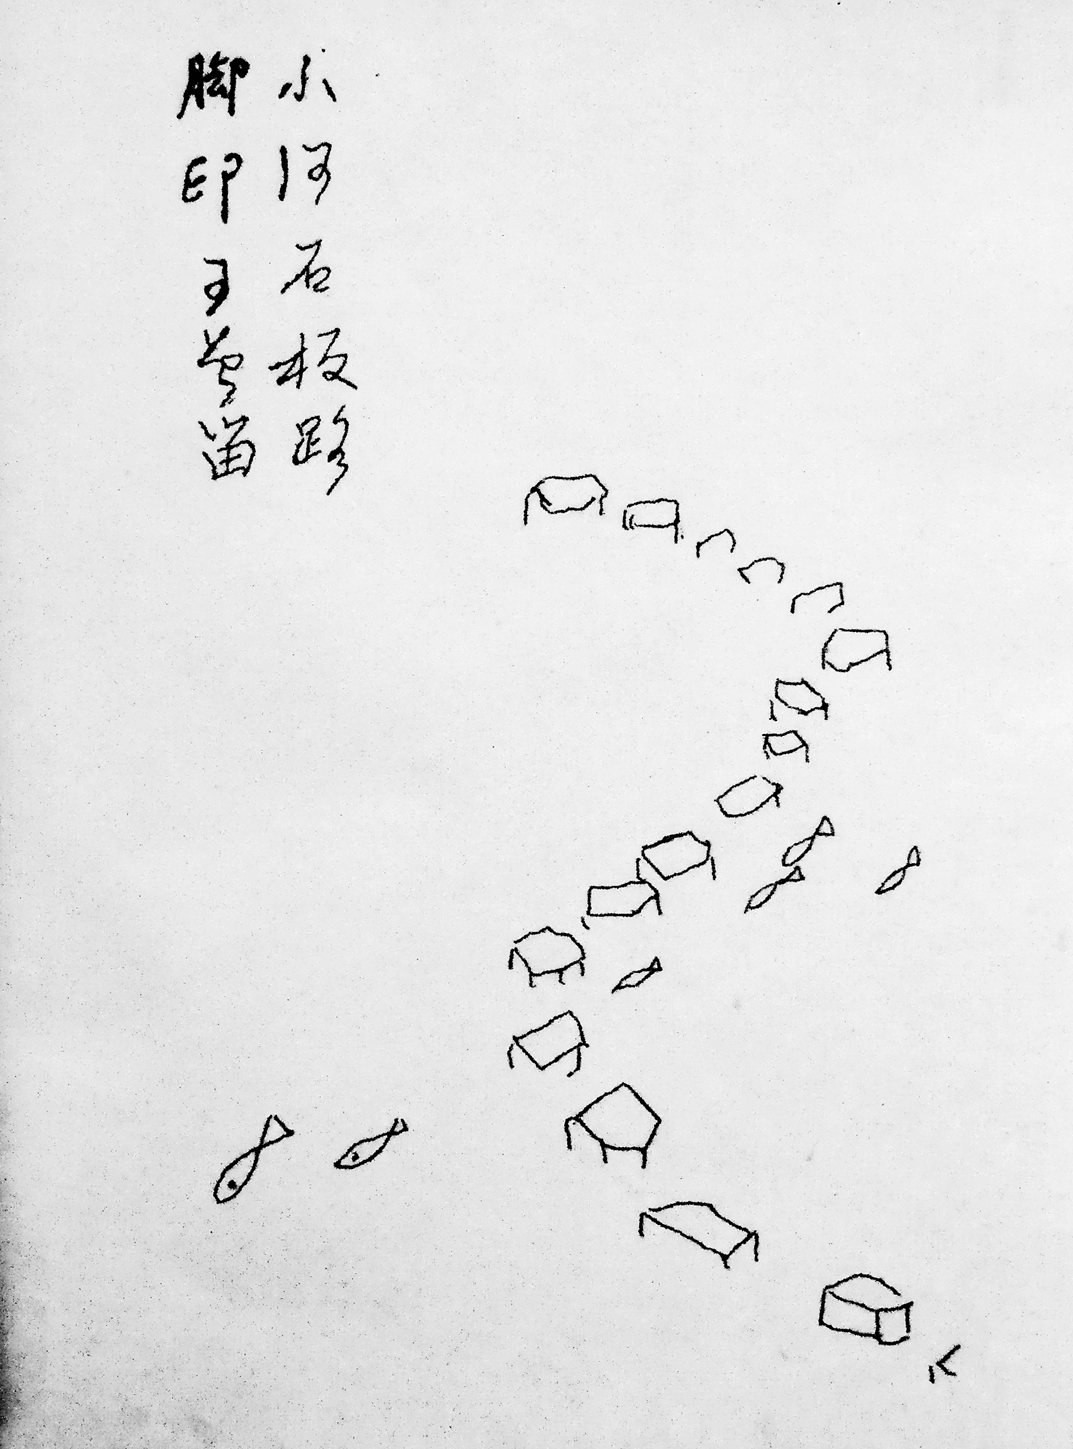 小河石板路
脚印可曾留